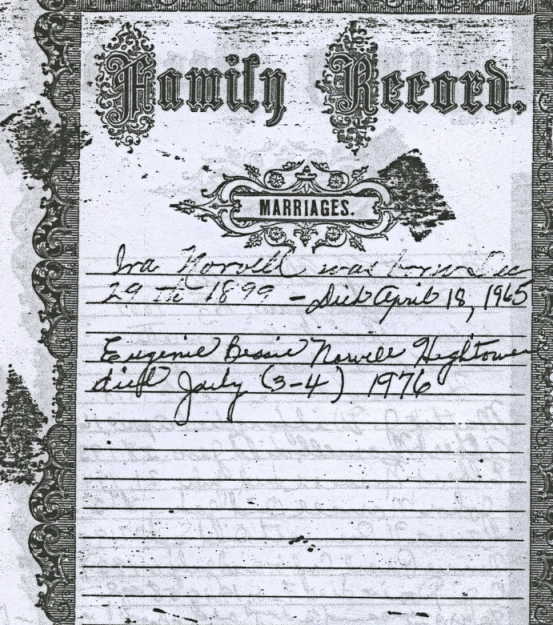 Family Record.
MARRIAGES.
Ira Norvell was born Dec
29 th 1899 - Died April 18, 1965
Eugenie Bessie Norvell Hightower
died Jaily (3-4) 1976